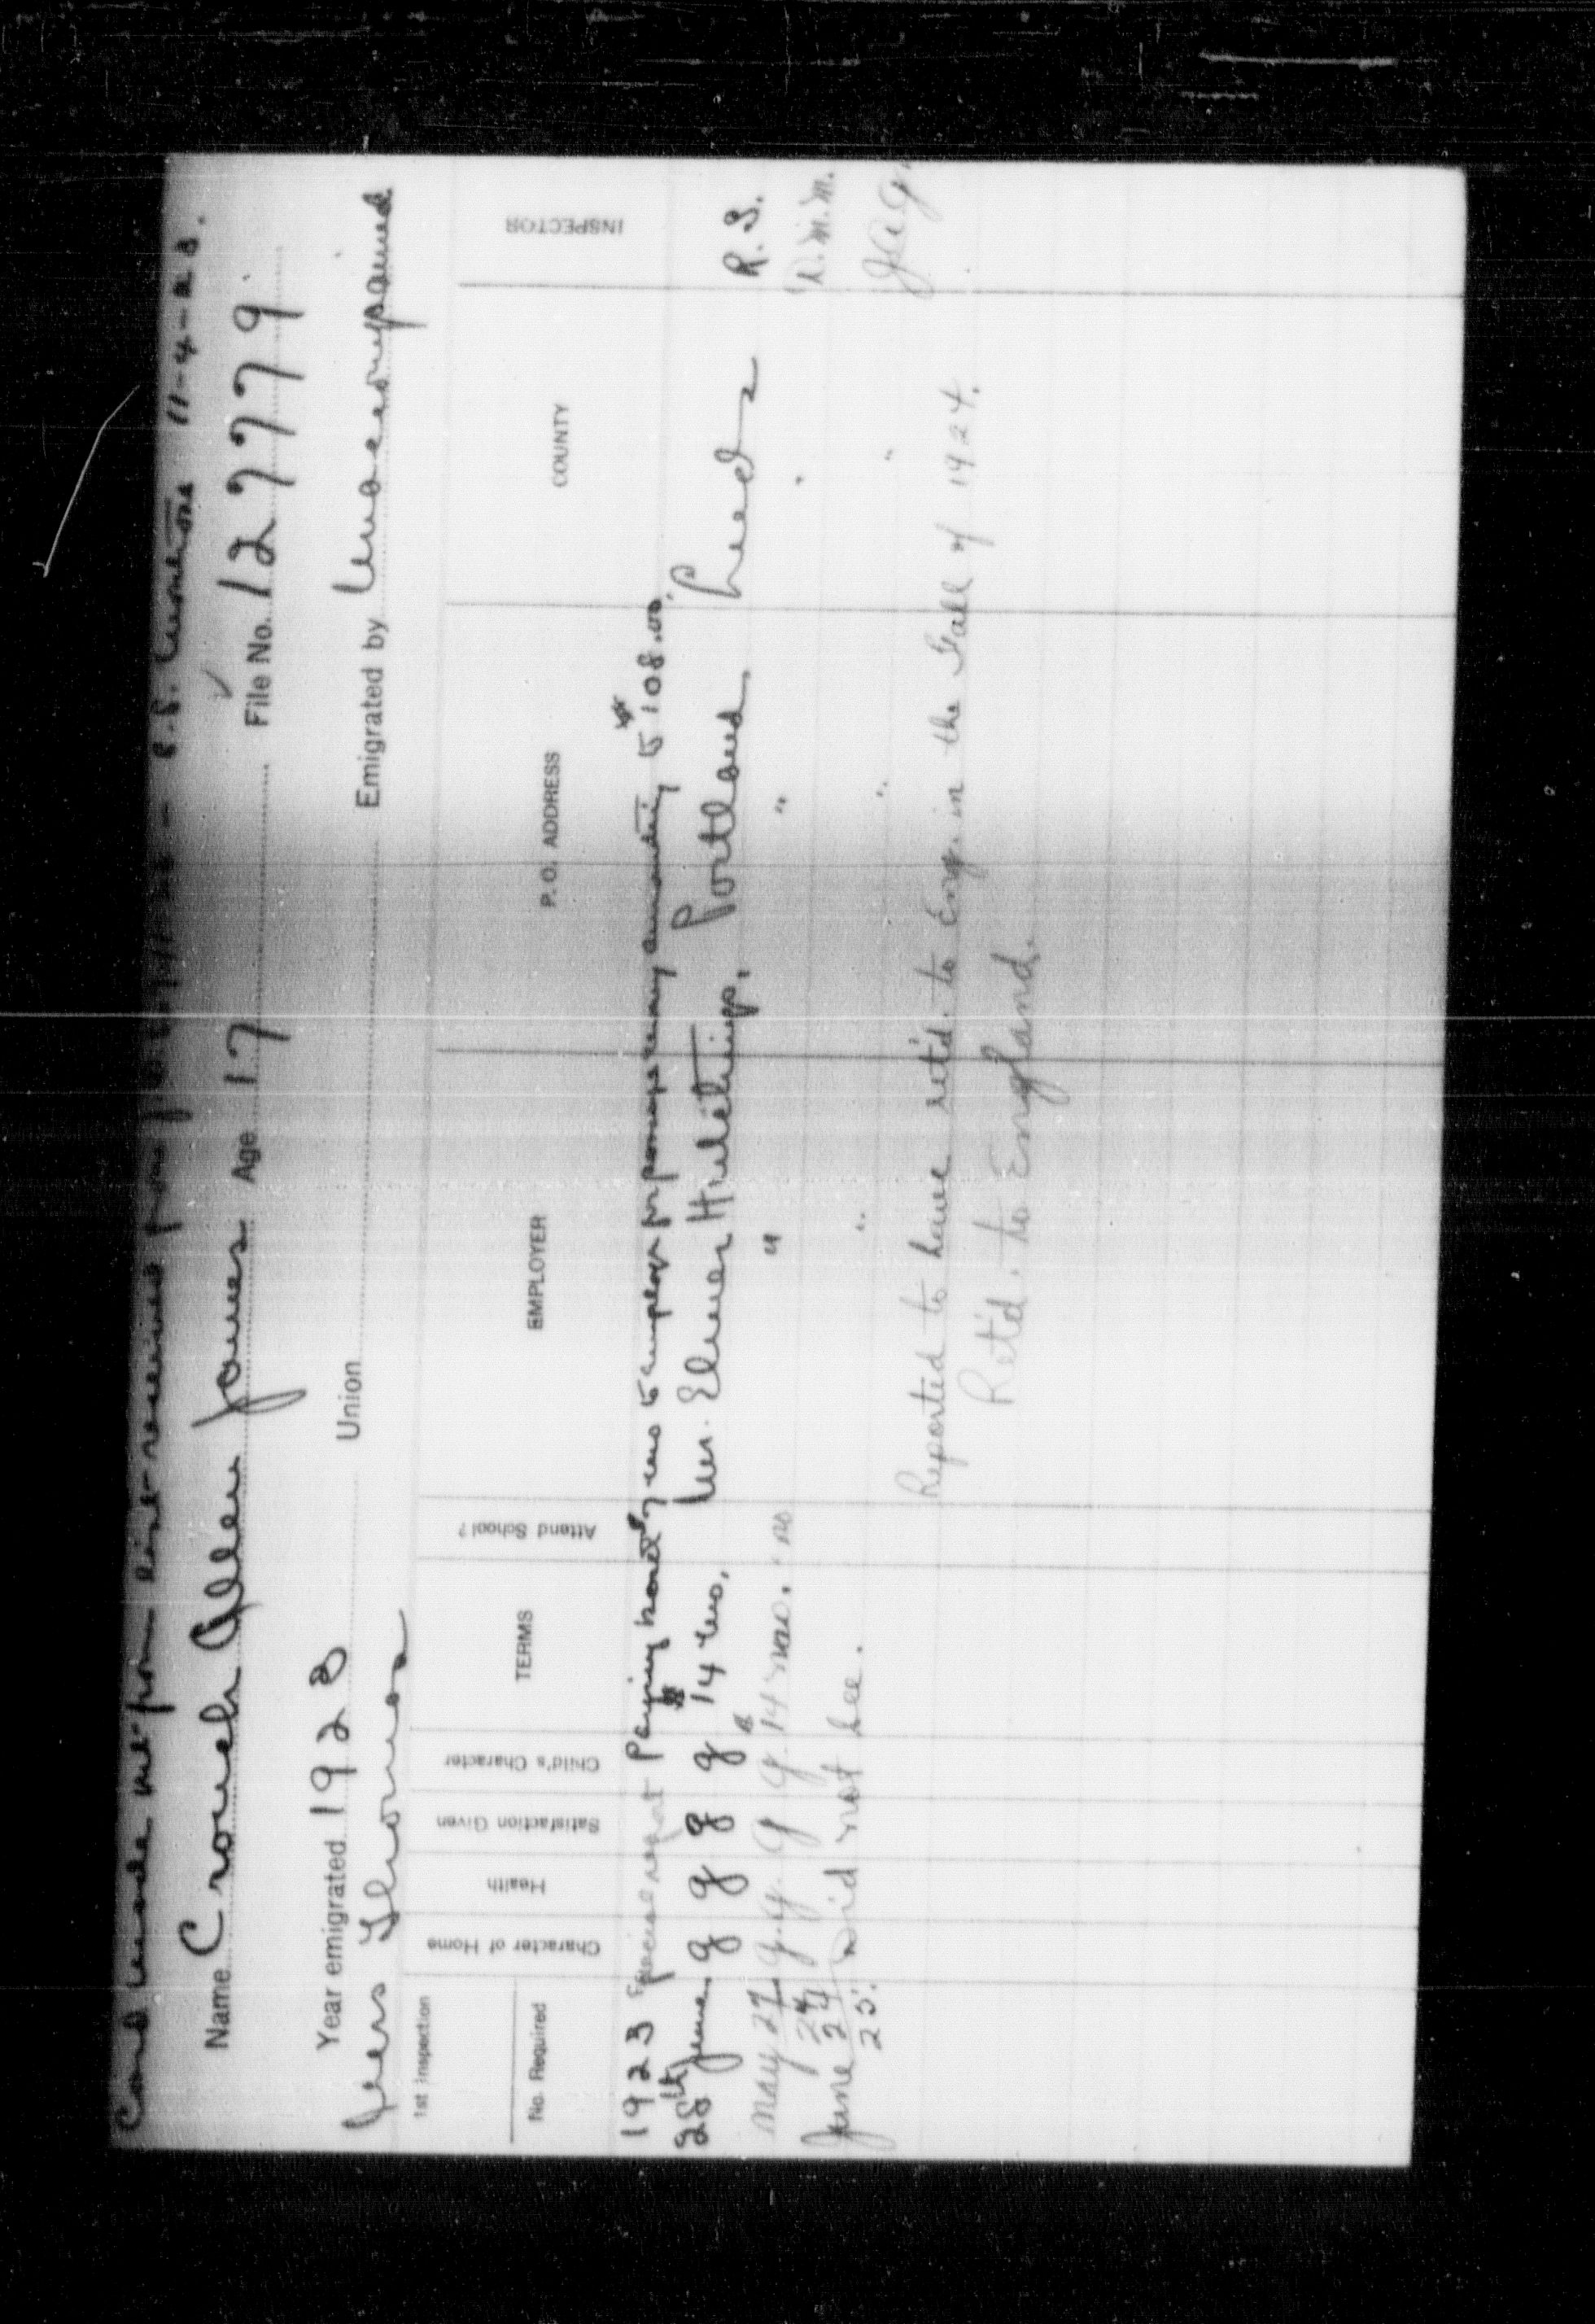 Card made out from list received from R.S. Cameron 11-4-23.
Name Crouch Allen James Age 17 File No. 12779
Year emigrated 1923 Union Emigrated by Unaccompanied
Thomas
1st Inspection
No. Required Character of Home Health Satisfaction Given Child's Character TERMS Attend School? EMPLOYER P.O. ADDRESS COUNTY INSPECTOR
1923 Special report Paying back to employer passage money amounting to $108.00.
28th June g g g g $14 mo. Mr. Elmer Portland Leeds R. S.
May 27/24 g. g. g g $14 mo. no " " "
June 24/25. Did not see. " " "
Reported to have ret'd. to Eng. in the Fall of 1924.
Ret'd. to England.